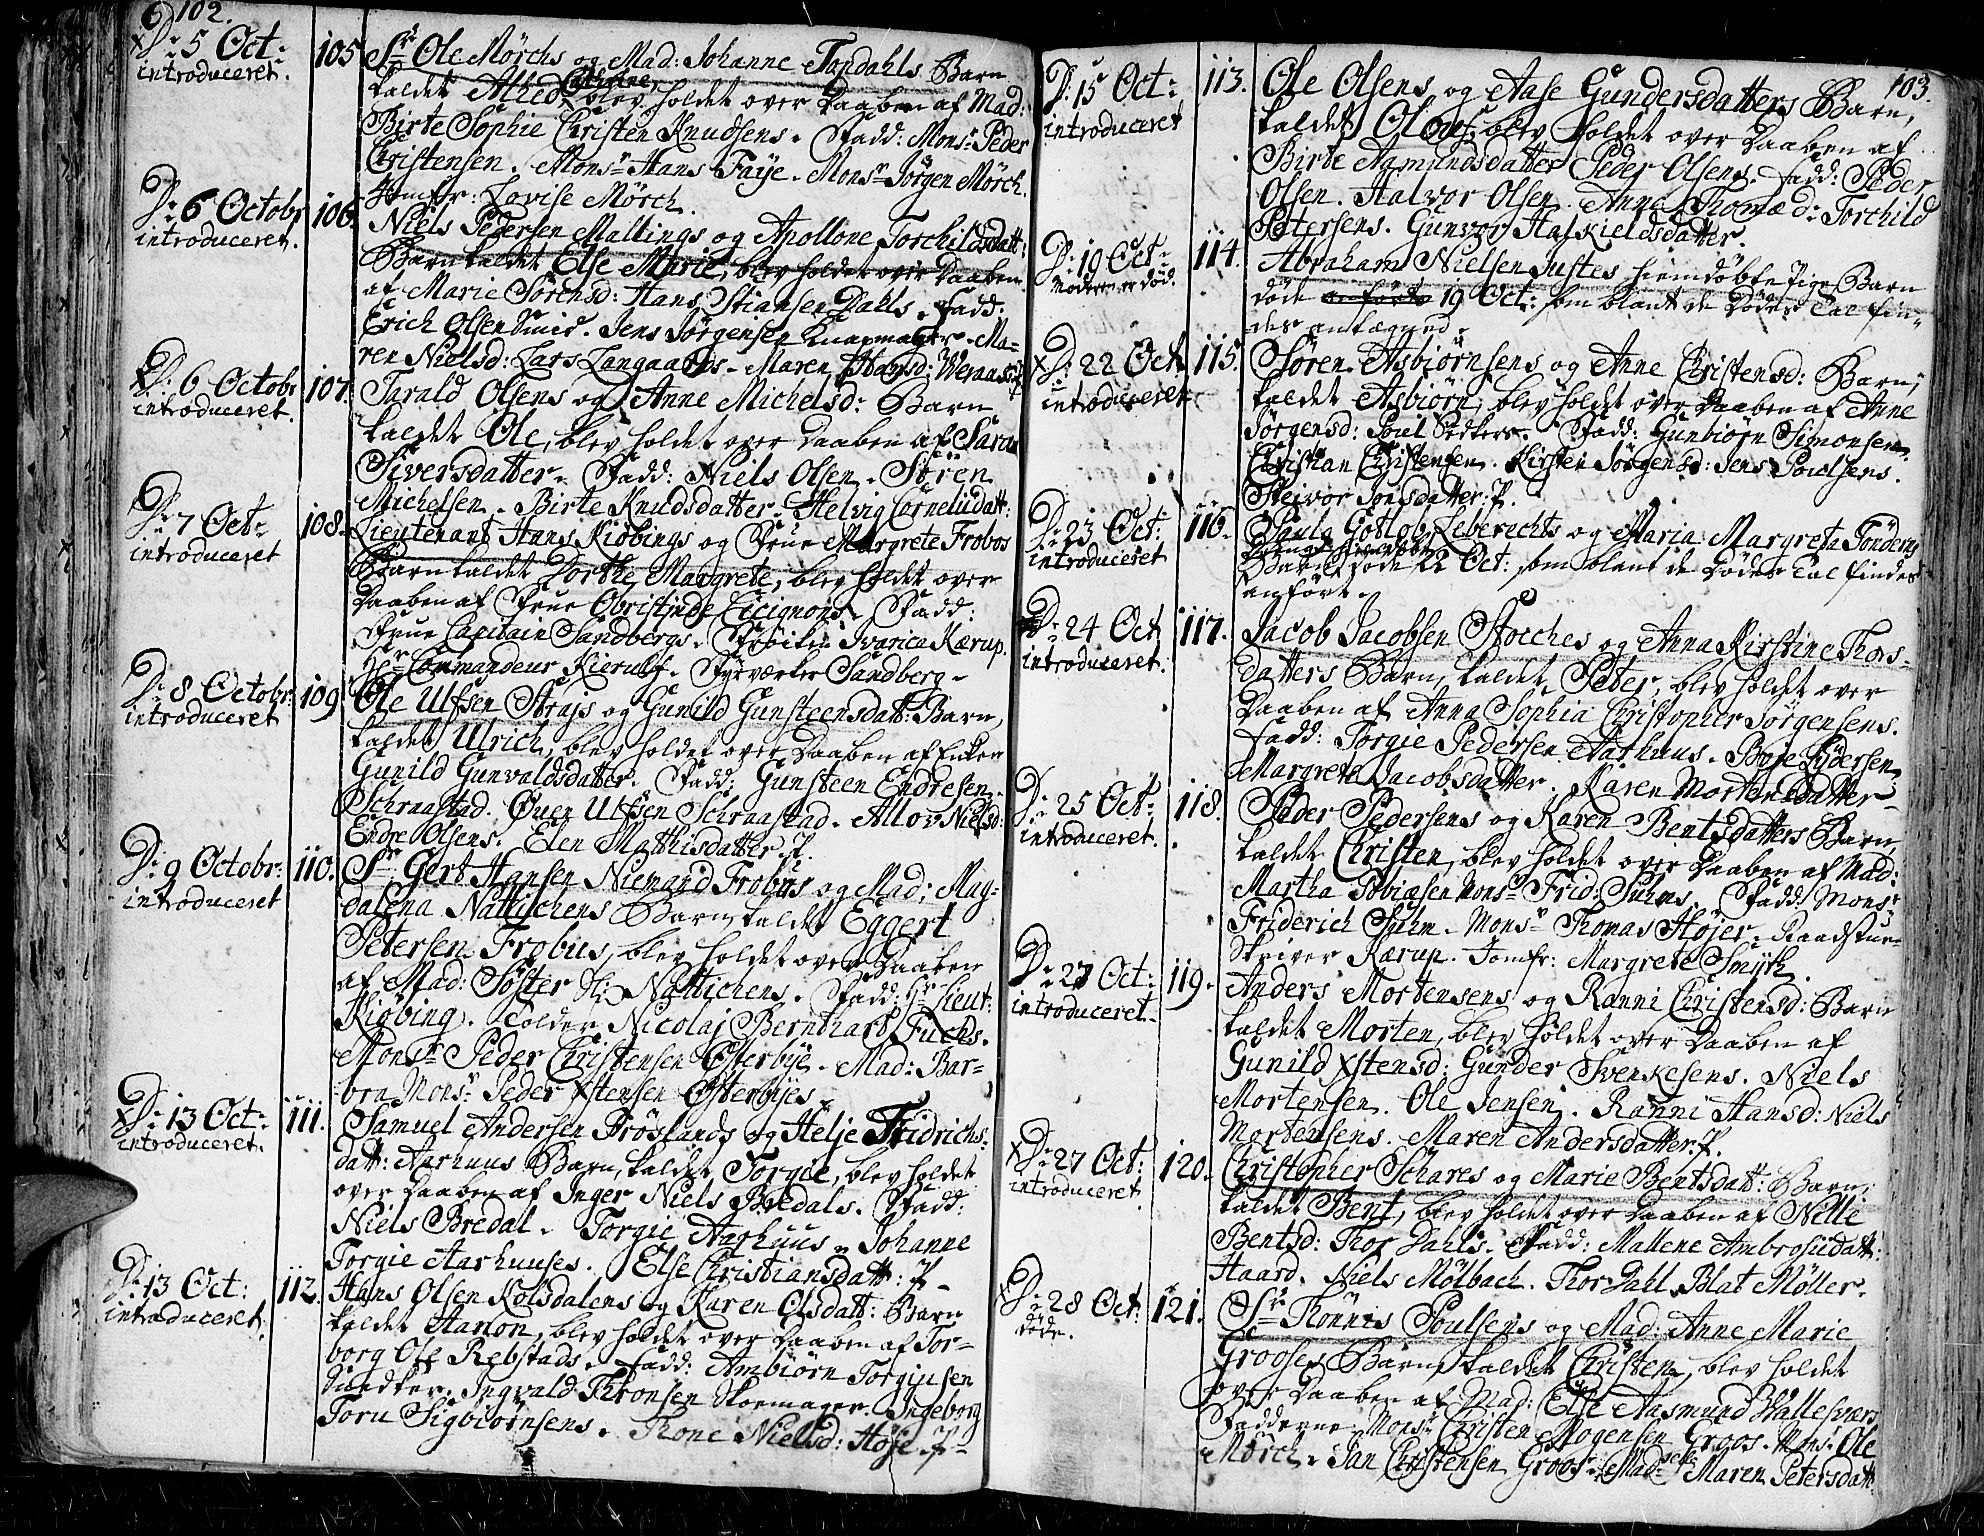 102.
D: 5 Oct:
introduceret.
105
Sr Ole Mörchs og Mad: Johanne Tapdahls Barn
kaldet Alhed Cathrine, blev holdet over Daaben af Mad:
Birte Sophie Christen Knudsens. Fadd: Monsr Peder
Christensen. Monsr Hans Faije. Monsr Jörgen Mörch.
Jomfr: Lovise Mörch.
D: 6 Octobr
introduceret.
106.
Niels Pedersen Mallings og Apollone Torchildsdatt:
Barn kaldet Else Marie, blev holdet over Daaben
af Marie Sörensd: Hans Stiansen Dahls. Fadd:
Erich Olsen Smid. Jens Jörgensen Knapmager. Ma-
ren Nielsd: Lars Langaards. Maren Hansd:
D: 6 Octobr
introduceret.
107.
Tarald Olsens og Anne Michelsd: Barn
kaldet Ole, blev holdet over Daaben af Sara
Siversdatter. Fadd: Niels Olsen. Sören
Michelsen. Birte Knudsdatter. Helvig Corneliidatt:
D: 7 Oct:
introduceret
108.
Lieutenant Hans Kiöbings og Frue Margrete Frobos
Barn kaldet Dorthe Margrete, blev holdet over
Daaben af Frue Obristinde Cicignon. Fadd:
Frue Capitain Sandbergs. Fröiken Ivarica Kærup.
Hr Commandeur Kierulf. Fyrværker Sandberg.
D: 8 Octobr:
introduceret
109
Ole Ulfsen Strajs og Gunild Gunsteensdatt: Barn,
kaldet Ulrich, blev holdet over Daaben af Enken
Gunild Gunvaldsdatter. Fadd: Gunsteen Endresen
Schraastad. Ouen Ulfsen Schraastad. Allov Nielsd:
Endre Olsens. Elen Matthisdatter P.
D: 9 Octobr:
introduceret
110.
Sr Gert Hansen Niemand Frobus og Mad: Mag-
dalena Nattichens Barn, kaldet Eggert
Petersen Frobus, blev holdet over Daaben
af Mad: Söster Sl: Nattichens. Fadd: Hr Lieut:
Kiöbing. Tolder Nicolaj Bernhart Fuchs.
Monsr Peder Christensen Österbye. Mad: Bar-
bra Monsr Peder Xstensen Österbyes.
D: 13 Oct:
introduceret.
111.
Samuel Andersen Fröslands og Helje Fridrichs-
datt: Aarhuus Barn, kaldet Torgie, blev holdet
over Daaben af Inger Niels Bredals. Fadd:
Niels Bredal. Torgie Aarhuus. Johanne
Torgie Aarhuuses. Else Christiansdatt: P
D: 13 Oct:
introduceret.
112.
Hans Olsen Kolsdalens og Karen Olsdatt: Barn
kaldet Aanon, blev holdet over Daaben af Tor-
borg Ole Rebstads. Fadd: Ambiörn Torgiusen
Snedker. Ingvald Thronsen Skoemager. Ingeborg
Toru Sigbiörnsens. Thone Nielsd: Höje P
103.
D: 15 Oct:
introduceret
113.
Ole Olsens og Aase Gundersdatters Barn,
kaldet Oluf, blev holdet over Daaben af
Birte Aamundsdatter Peder Olsens. Fadd: Peder
Olsen. Halvor Olsen. Anne Thomæd: Torchild
Petersens. Gunvor Halkieldsdatter.
D: 19 Oct:
Moderen er död.
114.
Abraham Nielsen Justes hiemdöbte Pige Barn
döde anförte 19 Oct: som blant de Dödes Tal fin-
des antegned.
D: 22 Oct
introduceret
115.
Sören Asbiörnsens og Anne Christensd: Barn,
kaldet Asbiörn, blev holdet over Daaben af Anne
Jörgensd: Poul Fedkers. Fadd: Gunbiörn Simonsen.
Christian Christensen. Kirsten Jörgensd: Jens Poulsens.
Steivor Jonsdatter P.
D: 23 Oct:
introduceret
116.
Paula Gotlob Leberechts og Maria Margreta Tönders
Barn döde 22 Oct: som blant de Dödes Tal findes
anfört.
D: 24 Oct
introduceret.
117.
Jacob Jacobsen Storches og Anna Kirstine Thors-
datters Barn, kaldet Peter, blev holdet over
Daaben af Anna Sophia Christopher Jörgensens.
Fadd: Torgie Pedersen Aarhuus. Boje Pedersen
Margrete Jacobsdatter. Karen Mortensdatter
D: 25 Oct:
introduceret.
118.
Peder Pedersens og Karen Bentsdatters Barn
kaldet Christen, blev holdet over Daaben af Mad:
Martha Tobiæsen Monsr Frid: Suhms. Fadd: Monsr
Friderich Suhm. Monsr Thomas Höjer. Raadstue-
skriver Kærup. Jomfr: Margrete Smith.
D: 27 Oct:
introduceret.
119.
Anders Mortensens og Ranni Christensd: Barn
kaldet Morten, blev holdet over Daaben af
Gunild Xstensd: Gunder Svenkesens. Niels
Mortensen. Ole Jensen. Ranni Hansd: Niels
Mortensens. Maren Andersdatter P.
D: 27 Oct:
introduceret.
120.
Christopher Schares og Marie Bentsdatt: Barn,
kaldet Bent, blev holdet over Daaben af Nelle
Bentsd: Thor Dahls. Fadd: Mallene Ambrosiidatt:
Haard. Niels Mölbach. Thor Dahl. Blat Möller.
D: 28 Oct:
döde.
121.
Sr Thönnis Poulsens og Mad: Anne Marie
Grooses Barn, kaldet Christen, blev holdet
over Daaben af Mad: Else Aasmund Walleværs
Fadderne Monsr Christen Mogensen Groos. Monsr Ole
Mörch. Jan Christensen Groos. Madselle Maren Petersdatt: